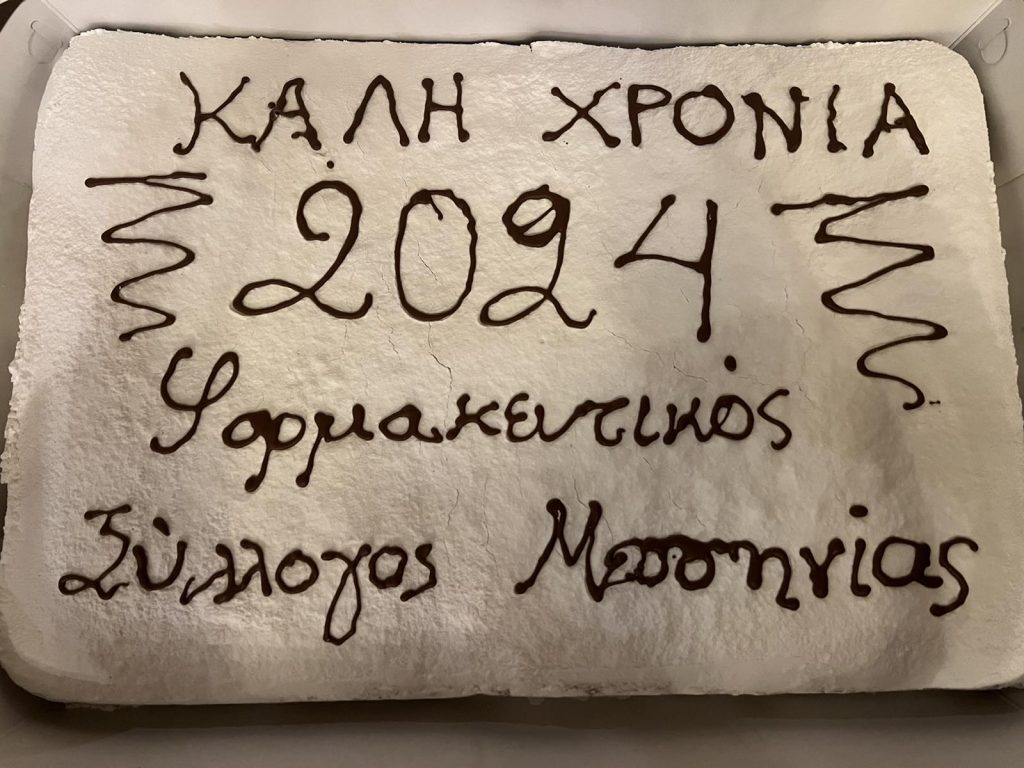 ΚΑΛΗ ΧΡΟΝΙΑ
2024
Φαρμακευτικός
Σύλλογος Μεσσηνίας